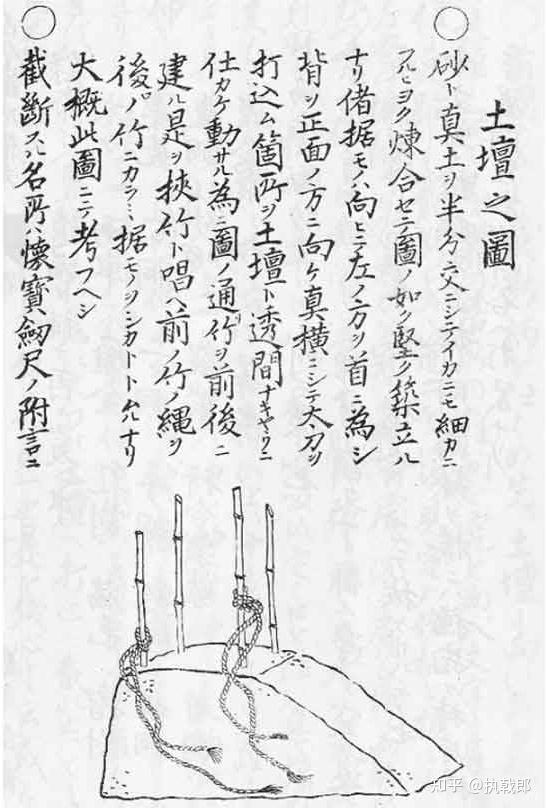 土壇之圖
○砂ト真土ヲ半分交ニシテイカニモ細カニ
フルヒヨク煉合セテ圖ノ如ク堅ク築立ル
ナリ偖据モノハ向ヒニテ左ノ方ヲ首ニ為シ
背ヲ正面ノ方ニ向ケ真横ニシテ太刀ヲ
打込ム箇所ヲ土壇ト透間ナキヤウニ
仕カケ動サル為ニ圖ノ通リ竹ヲ前後ニ
建ル是ヲ挾竹ト唱ヘ前ノ竹ノ縄ヲ
後ロノ竹ニカラミ据モノヲシカト〆ルナリ
大概此圖ニテ考フヘシ
○截斷スル名所ハ懐寶劔尺ノ附言ニ
知乎 @执戟郎